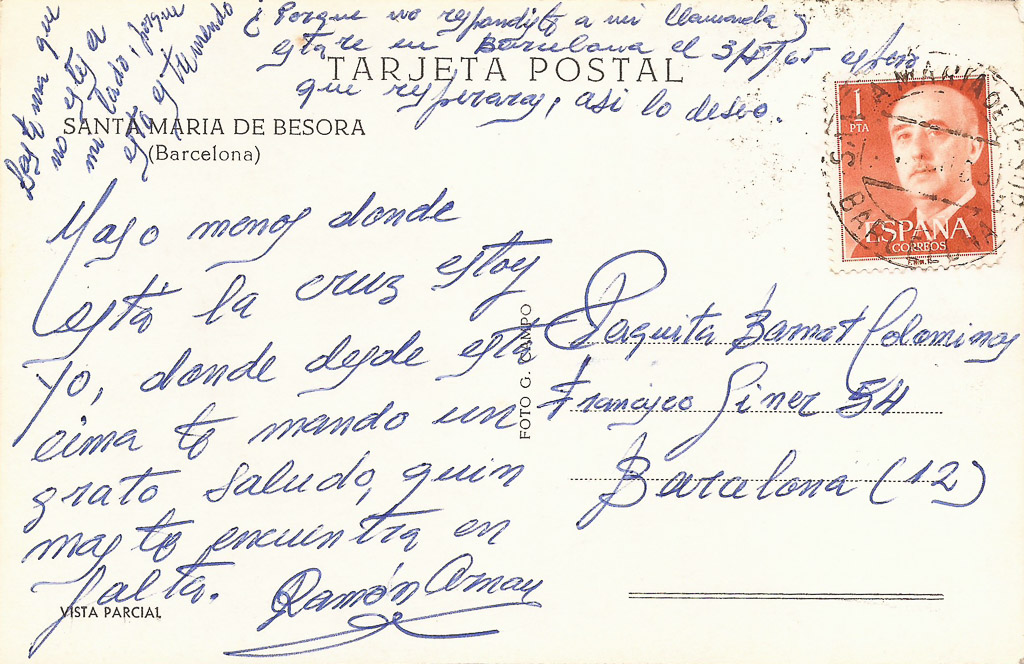 ¿Porque no respondiste a mi llamada?
estare en Barcelona el 3/5/65 espero
que responderas, asi lo deseo.
TARJETA POSTAL
SANTA MARIA DE BESORA
(Barcelona)
Lastima que
no estes a
mi lado, porque
esta estupendo
Mas o menos donde
está la cruz estoy
yo, donde desde esta
cima te mando un
grato saludo, quien
mas te encuentra en
falta.
Ramón Arnau
VISTA PARCIAL
FOTO G. CAMPO
1
PTA
ESPAÑA
CORREOS
STA MARIA DE BESORA
BARCELONA
Paquita Barnat Colominas
Francisco Giner 54
Barcelona (12)